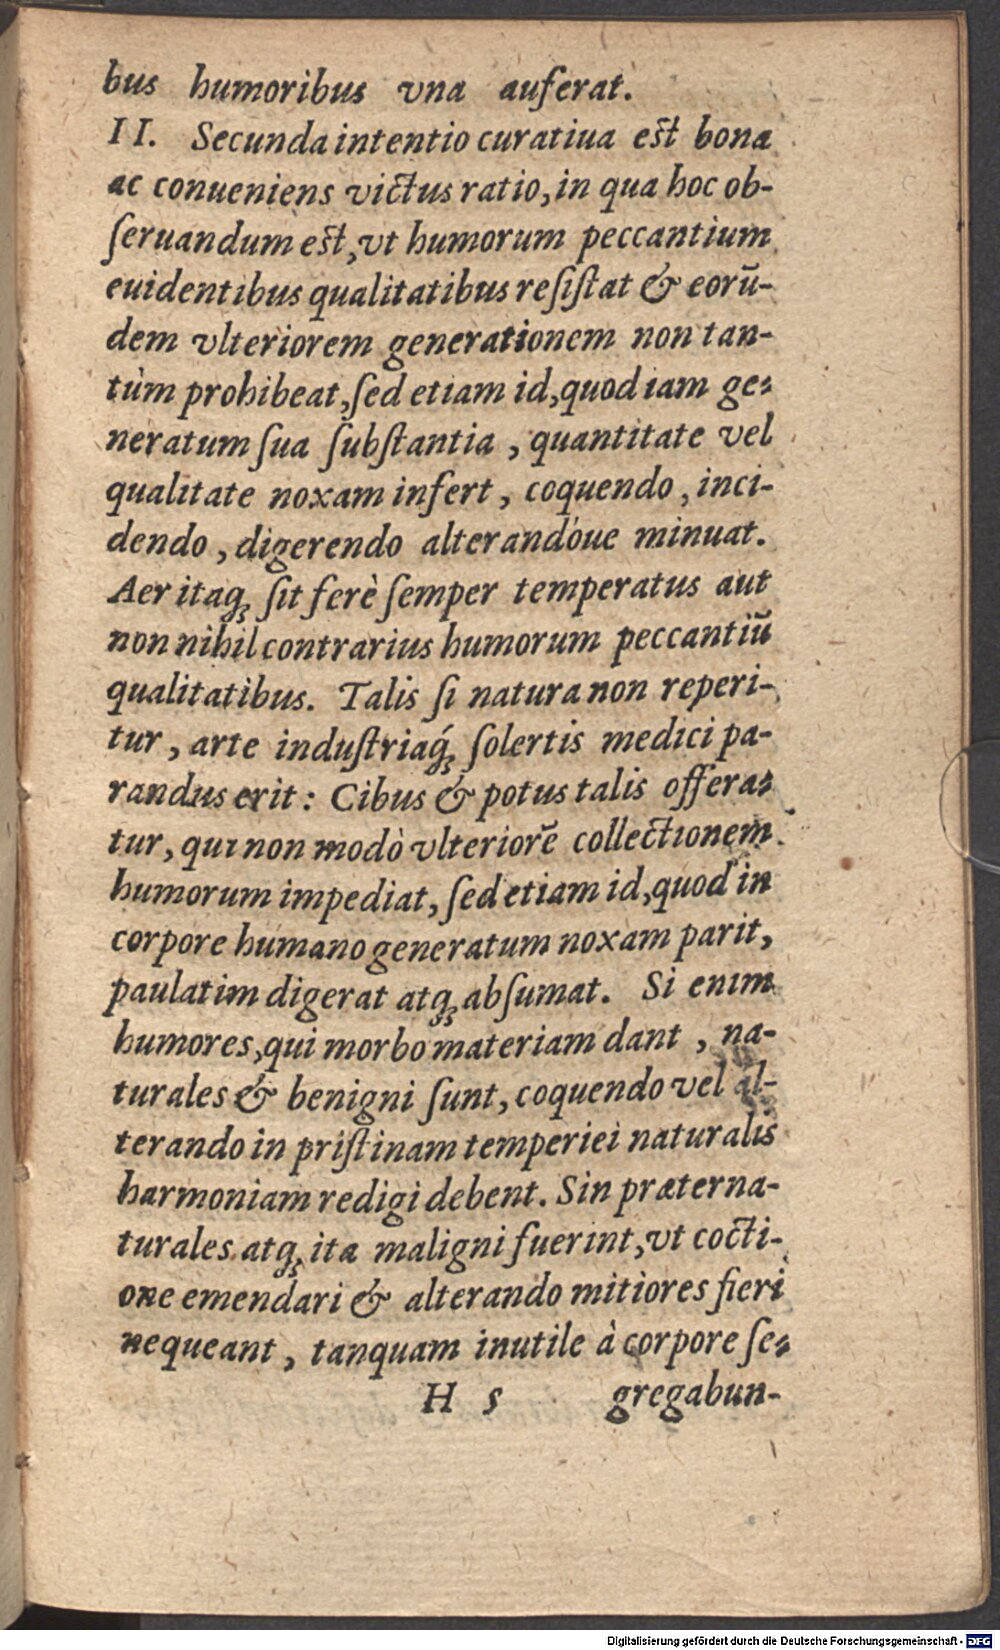 bus humoribus vna auferat.
II. Secunda intentio curatiua est bona
ac conueniens victus ratio, in qua hoc ob-
ſeruandum est, vt humorum peccantium
euidentibus qualitatibus reſiſtat & eorū-
dem vlteriorem generationem non tan-
tùm prohibeat, ſed etiam id, quod iam ge-
neratum ſua ſubſtantia, quantitate vel
qualitate noxam infert, coquendo, inci-
dendo, digerendo alterandóue minuat.
Aer itaq; ſit ferè ſemper temperatus aut
non nihil contrarius humorum peccantiū
qualitatibus. Talis ſi natura non reperi-
tur, arte induſtriaq́; ſolertis medici pa-
randus erit: Cibus & potus talis offera-
tur, qui non modò vlteriorē collectionem
humorum impediat, ſed etiam id, quod in
corpore humano generatum noxam parit,
paulatim digerat atq; abſumat. Si enim
humores, qui morbo materiam dant, na-
turales & benigni ſunt, coquendo vel al-
terando in priſtinam temperiei naturalis
harmoniam redigi debent. Sin præterna-
turales atq; ita maligni fuerint, vt cocti-
one emendari & alterando mitiores fieri
nequeant, tanquam inutile à corpore ſe-
H 5 gregabun-
Digitalisierung gefördert durch die Deutsche Forschungsgemeinschaft - DFG